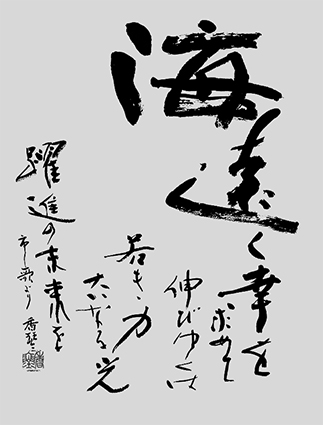 海
遠く幸を
求めて
伸びゆくは
若き力
大いなる光
躍進の未来を
市歌より